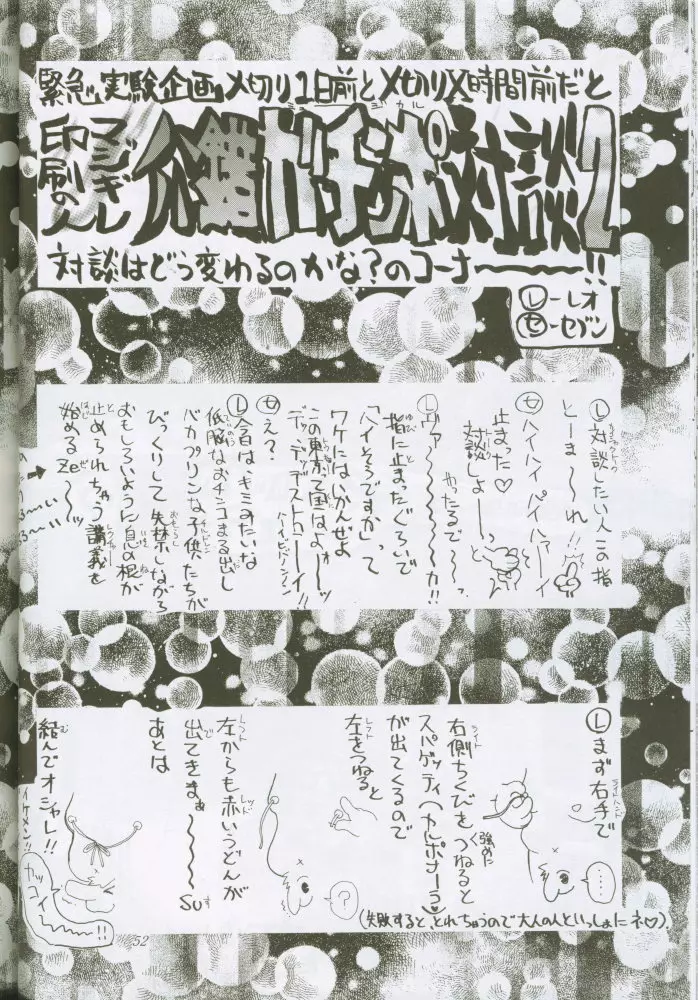 緊急実験企画〆切り1日前と〆切りX時間前だと
印刷の人
マジギレ
対談2
対談はどう変わるのかな?のコーナー〜〜〜!!
Ⓛーレオ
㋝ーセブン
Ⓛ対談したい人この指
とーま〜〜れ!!
㋝ハイハイハイハァーイ
止まった♡
対談しよー
Ⓛヴァ〜〜〜〜カ!!
やったるで〜〜っ
指に止まったぐらいで
「ハイそうですか」って
ワケにはいかんぜよ
この東方って国はよォ〜〜ッ
デッ・デッデストローイ!!
㋝え?
Ⓛ今日はキミみたいな
低脳なおチンコまる出し
バカプリンな子供たちが
びっくりして失禁しながら
おもしろいように息の根が
止められちゃう講義を
始めるze〜〜ッ
Ⓛまず右手で
右側ちくびをつねると
強めに
スパゲッティ(カルボナーラ)
が出てくるので
左をつねると
左からも赤いうどんが
出てきまぁ〜〜〜su
あとは
結んでオシャレ!!
イケメン!!
カッコイ〜〜〜!!
……
?
(失敗すると、とれちゃうので大人の人といっしょにネ♡)
52